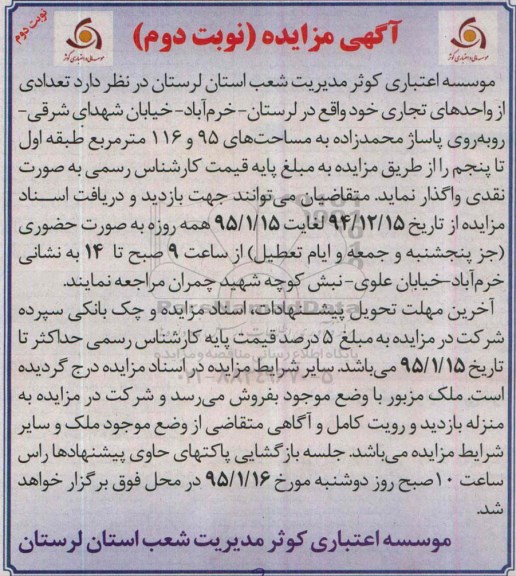 نوبت دوم
آگهی مزایده (نوبت دوم)
موسسه مالی و اعتباری کوثر
موسسه مالی و اعتباری کوثر
موسسه اعتباری کوثر مدیریت شعب استان لرستان در نظر دارد تعدادی
از واحدهای تجاری خود واقع در لرستان-خرم‌آباد-خیابان شهدای شرقی-
روبه‌روی پاساژ محمدزاده به مساحت‌های ۹۵ و ۱۱۶ مترمربع طبقه اول
تا پنجم را از طریق مزایده به مبلغ پایه قیمت کارشناس رسمی به صورت
نقدی واگذار نماید. متقاضیان می‌توانند جهت بازدید و دریافت اسناد
مزایده از تاریخ ۹۴/۱۲/۱۵ لغایت ۹۵/۱/۱۵ همه روزه به صورت حضوری
(جز پنجشنبه و جمعه و ایام تعطیل) از ساعت ۹ صبح تا ۱۴ به نشانی
خرم‌آباد-خیابان علوی-نبش کوچه شهید چمران مراجعه نمایند.
آخرین مهلت تحویل پیشنهادات، اسناد مزایده و چک بانکی سپرده
شرکت در مزایده به مبلغ ۵ درصد قیمت پایه کارشناس رسمی حداکثر تا
تاریخ ۹۵/۱/۱۵ می‌باشد. سایر شرایط مزایده در اسناد مزایده درج گردیده
است. ملک مزبور با وضع موجود بفروش می‌رسد و شرکت در مزایده به
منزله بازدید و رویت کامل و آگاهی متقاضی از وضع موجود ملک و سایر
شرایط مزایده می‌باشد. جلسه بازگشایی پاکتهای حاوی پیشنهادها راس
ساعت ۱۰ صبح روز دوشنبه مورخ ۹۵/۱/۱۶ در محل فوق برگزار خواهد
شد.
موسسه اعتباری کوثر مدیریت شعب استان لرستان